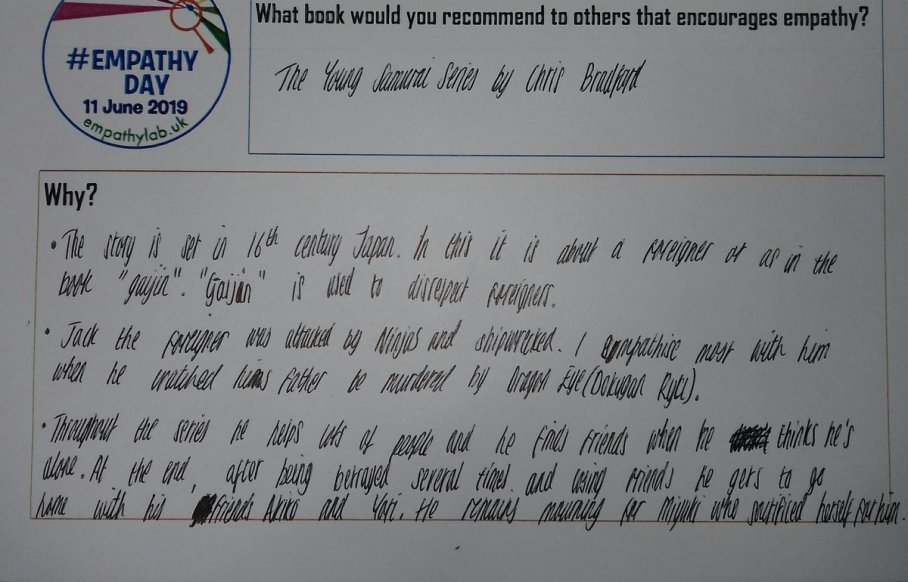 What book would you recommend to others that encourages empathy?
#EMPATHY
DAY
11 June 2019
empathylab.uk
The Young Samurai Series by Chris Bradford
Why?
• The story is set in 16th century Japan. In this it is about a foreigner or as in the
book "gaijin". "Gaijin" is used to disrespect foreigners.
• Jack the foreigner was attacked by Ninjas and shipwrecked. I empathise most with him
when he watched his father be murdered by Dragon Eye (Dokugan Ryu).
• Throughout the series he helps lots of people and he finds friends when he thinks he's
alone. At the end, after being betrayed several times and losing friends he gets to go
home with his friends Akiko and Yori. He remains mourning for Miyuki who sacrificed herself for him.